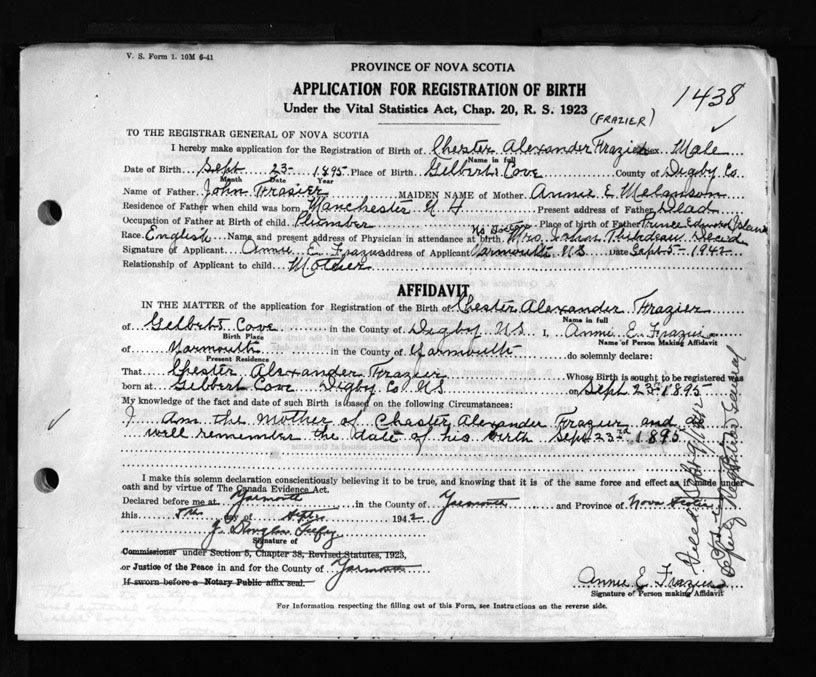 V. S. Form 1. 10M 6-41
PROVINCE OF NOVA SCOTIA
APPLICATION FOR REGISTRATION OF BIRTH
1438
Under the Vital Statistics Act, Chap. 20, R. S. 1923
(FRAZIER)
TO THE REGISTRAR GENERAL OF NOVA SCOTIA
I hereby make application for the Registration of Birth of Chester Alexander Frazier Sex Male
Name in full
Date of Birth Sept 23 1895 Place of Birth Gilbert Cove County of Digby Co
Month Date Year
Name of Father John Frasier MAIDEN NAME of Mother Annie E Melanson
Residence of Father when child was born Manchester N H Present address of Father Dead
Occupation of Father at Birth of child Plumber Place of birth of Father Prince Edward Island
Race English Name and present address of Physician in attendance at birth No Doctors Mrs John Thibideau Decid
Signature of Applicant Annie E. Frazier Address of Applicant Yarmouth N.S. Date Sept 5 - 1942
Relationship of Applicant to child Mother
AFFIDAVIT
IN THE MATTER of the application for Registration of the Birth of Chester Alexander Frazier
Name in full
of Gilbert Cove in the County of Digby N.S. I, Annie E. Frazier
Birth Place Name of Person Making Affidavit
of Yarmouth in the County of Yarmouth do solemnly declare:
Present Residence
That Chester Alexander Frazier Whose Birth is sought to be registered was
born at Gilbert Cove Digby Co N.S on Sept 23rd 1895
My knowledge of the fact and date of such Birth is based on the following Circumstances:
I Am the Mother of Chester Alexander Frazier and do
well remember the date of his birth Sept 23rd 1895
I make this solemn declaration conscientiously believing it to be true, and knowing that it is of the same force and effect as if made under
oath and by virtue of The Canada Evidence Act.
Declared before me at Yarmouth in the County of Yarmouth and Province of Nova Scotia
this 5th day of Sept 1942
J. Douglas
Signature of
Commissioner under Section 5, Chapter 38, Revised Statutes, 1923,
or Justice of the Peace in and for the County of Yarmouth
If sworn before a Notary Public affix seal.
Annie E. Frazier
Signature of Person making Affidavit
For Information respecting the filling out of this Form, see Instructions on the reverse side.
Deputy Registrar General